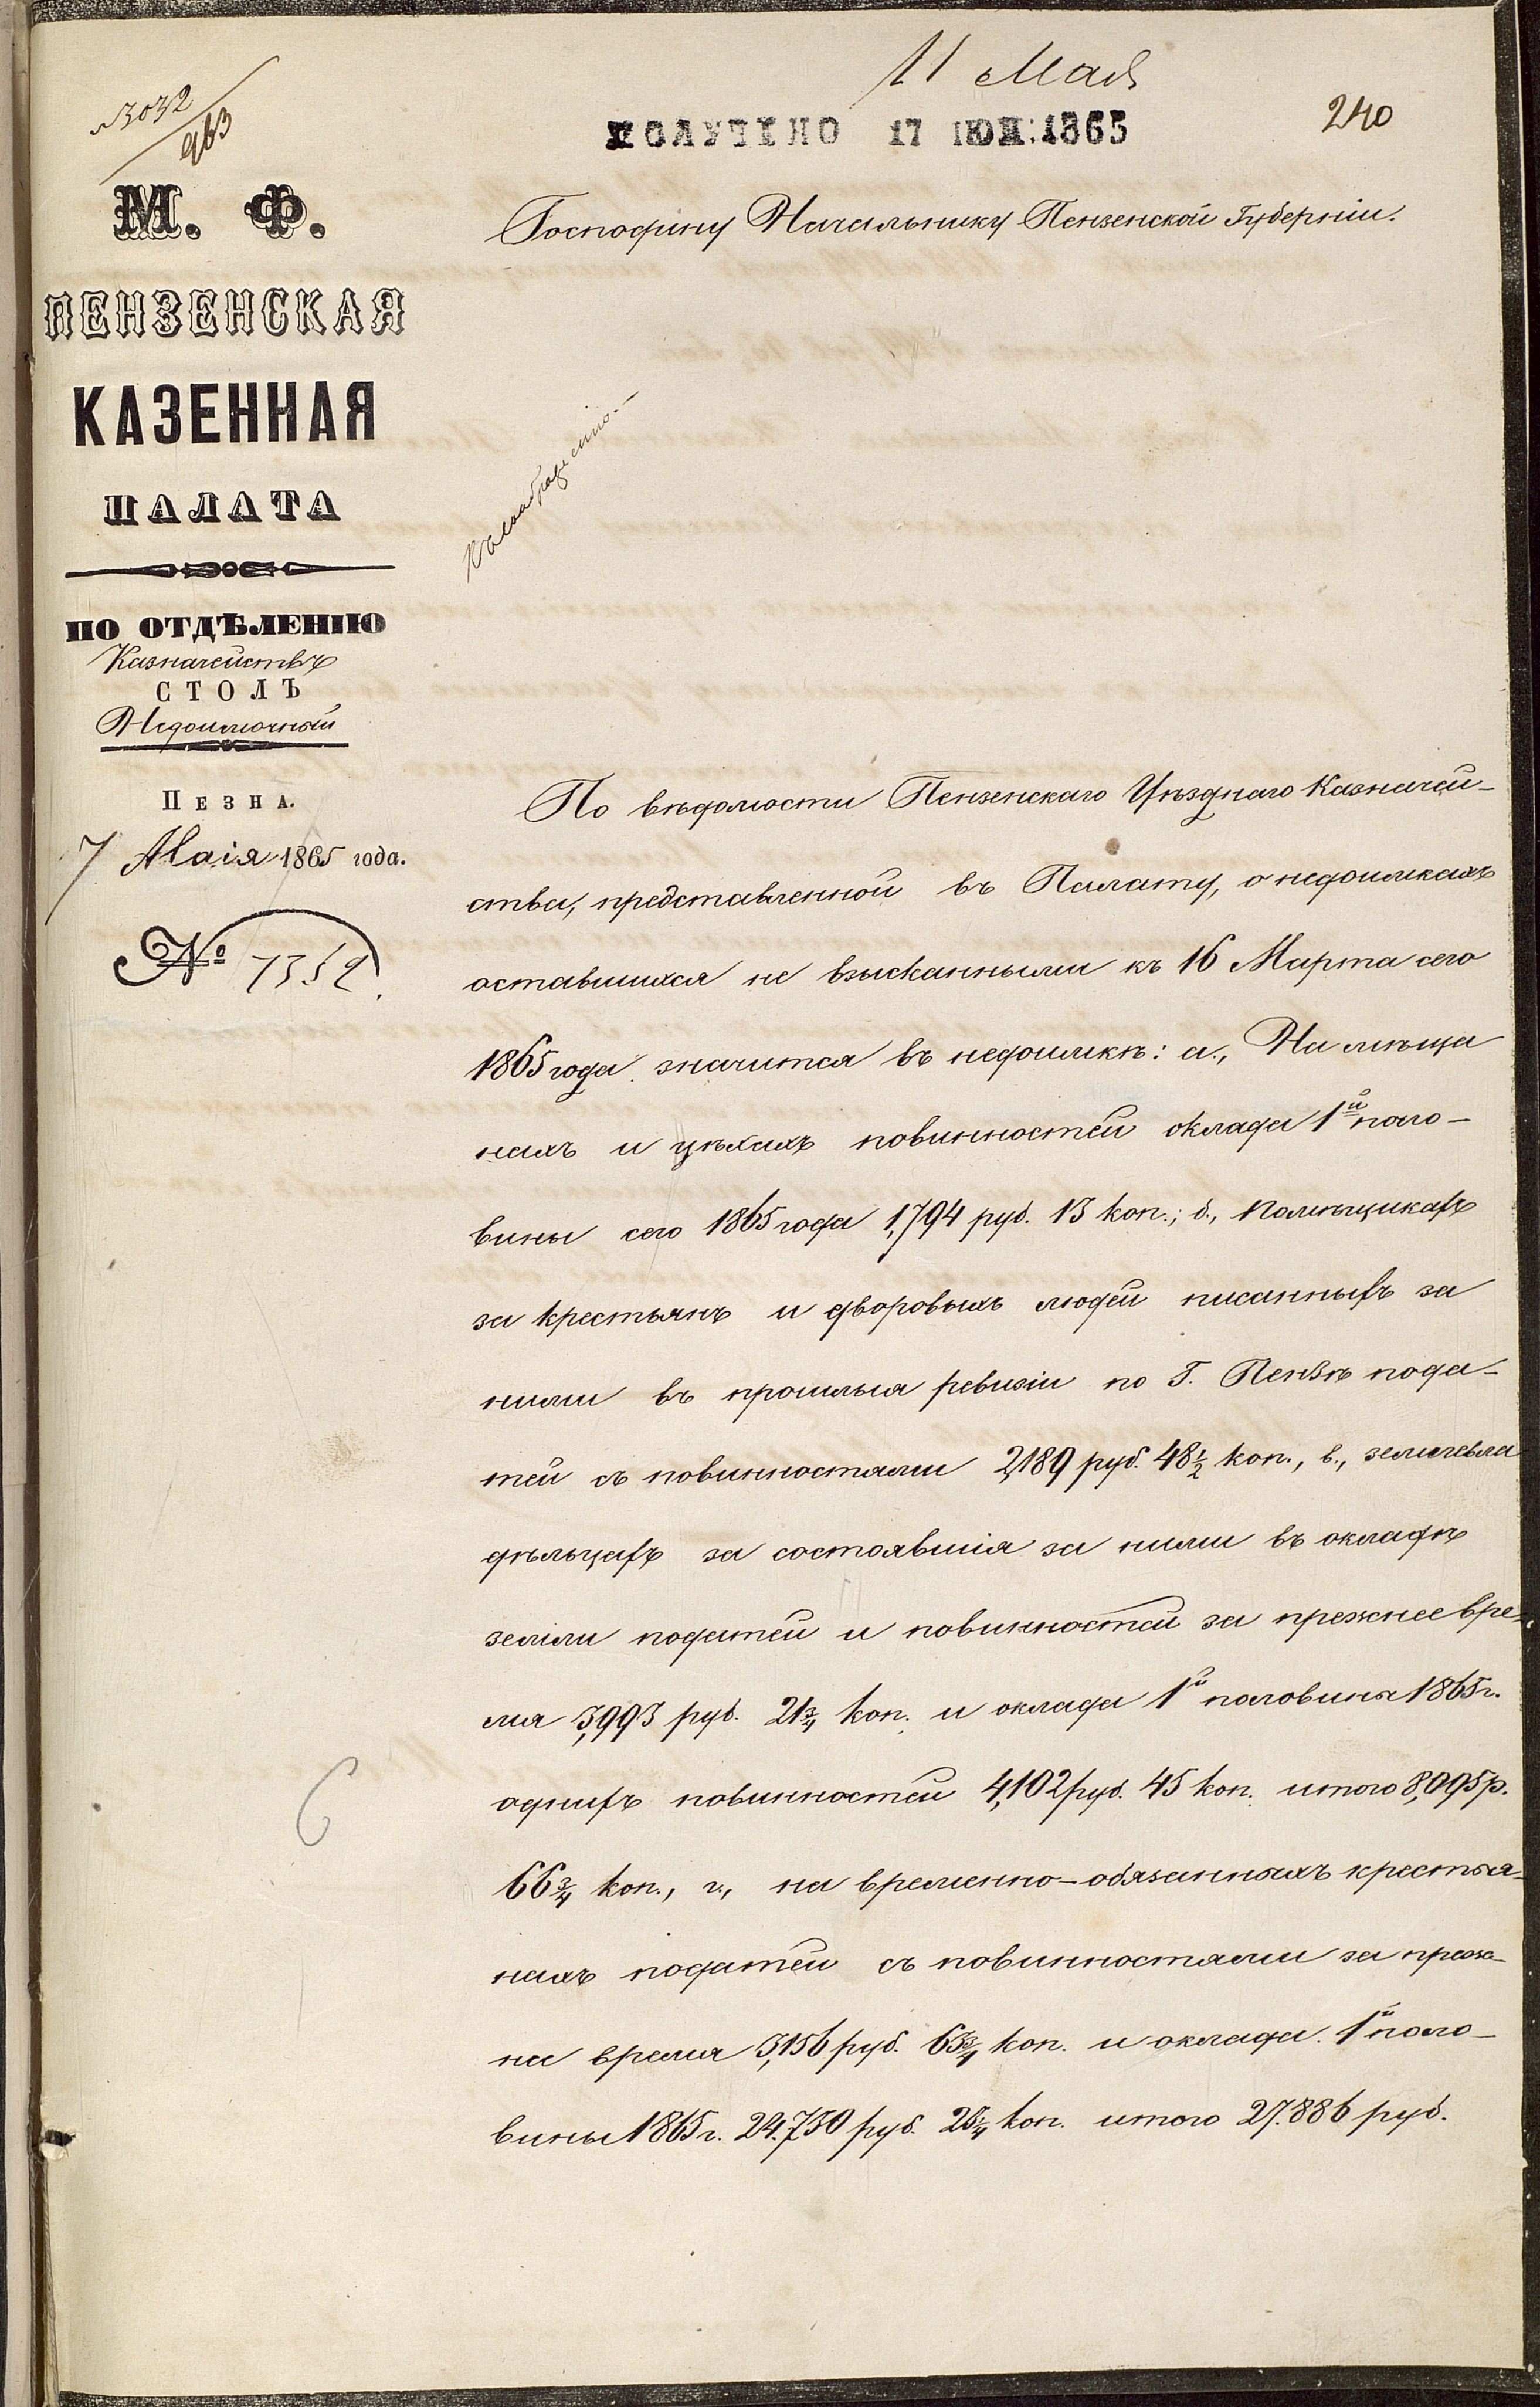 №3032
963
11 Мая
ПОЛУЧЕНО 17 1865
240
М. Ф.
ПЕНЗЕНСКАЯ
КАЗЕННАЯ
ПАЛАТА
ПО ОТДѢЛЕНІЮ
Казначействъ
СТОЛЪ
Недоимочный
ПЕЗНА.
7 Маія 1865 года.
№ 7352.
Господину Начальнику Пензенской Губерніи.
Къ соображенію.-
По вѣдомости Пензенскаго Уѣзднаго Казначей-
ства, представленной въ Палату, о недоимкахъ
оставшихся не взысканными къ 16 Марта сего
1865 года значится въ недоимкѣ: а., На мѣща
нахъ и цѣхахъ повинностей оклада 1й поло-
вины сего 1865 года 1,794 руб. 13 коп.; б., Помѣщикахъ
за крестьянъ и дворовыхъ людей писанныхъ за
ними въ прошлыя ревизіи по Г. Пензѣ пода-
тей съ повинностями 2,189 руб. 48½ коп., в., землевла
дѣльцахъ за состоявшія за ними въ окладѣ
земли податей и повинностей за прежнее вре-
мя 3,993 руб. 21¾ коп. и оклада 1й половины 1865 г.
однихъ повинностей 4,102 руб. 45 коп. итого 8,095 р.
66¾ коп., г., на временно-обязанныхъ крестья-
нахъ податей съ повинностями за преж-
нее время 3,156 руб. 63¾ коп. и оклада 1й поло-
вины 1865 г. 24.730 руб. 25¼ коп. итого 27.886 руб.